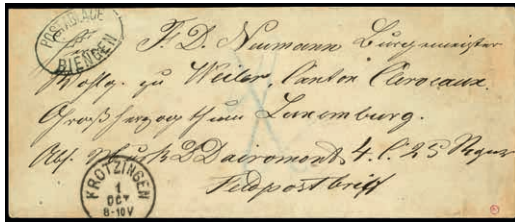 POSTABLAGE
BIENGEN
F. D. Neumann Burgemeister
Wohlg. zu Weiler, Canton Clervaux.
Großherzogthum Luxemburg.
Abs. 4. C. 25
Feldpostbrief
KROTZINGEN
1
OCT
8-10V